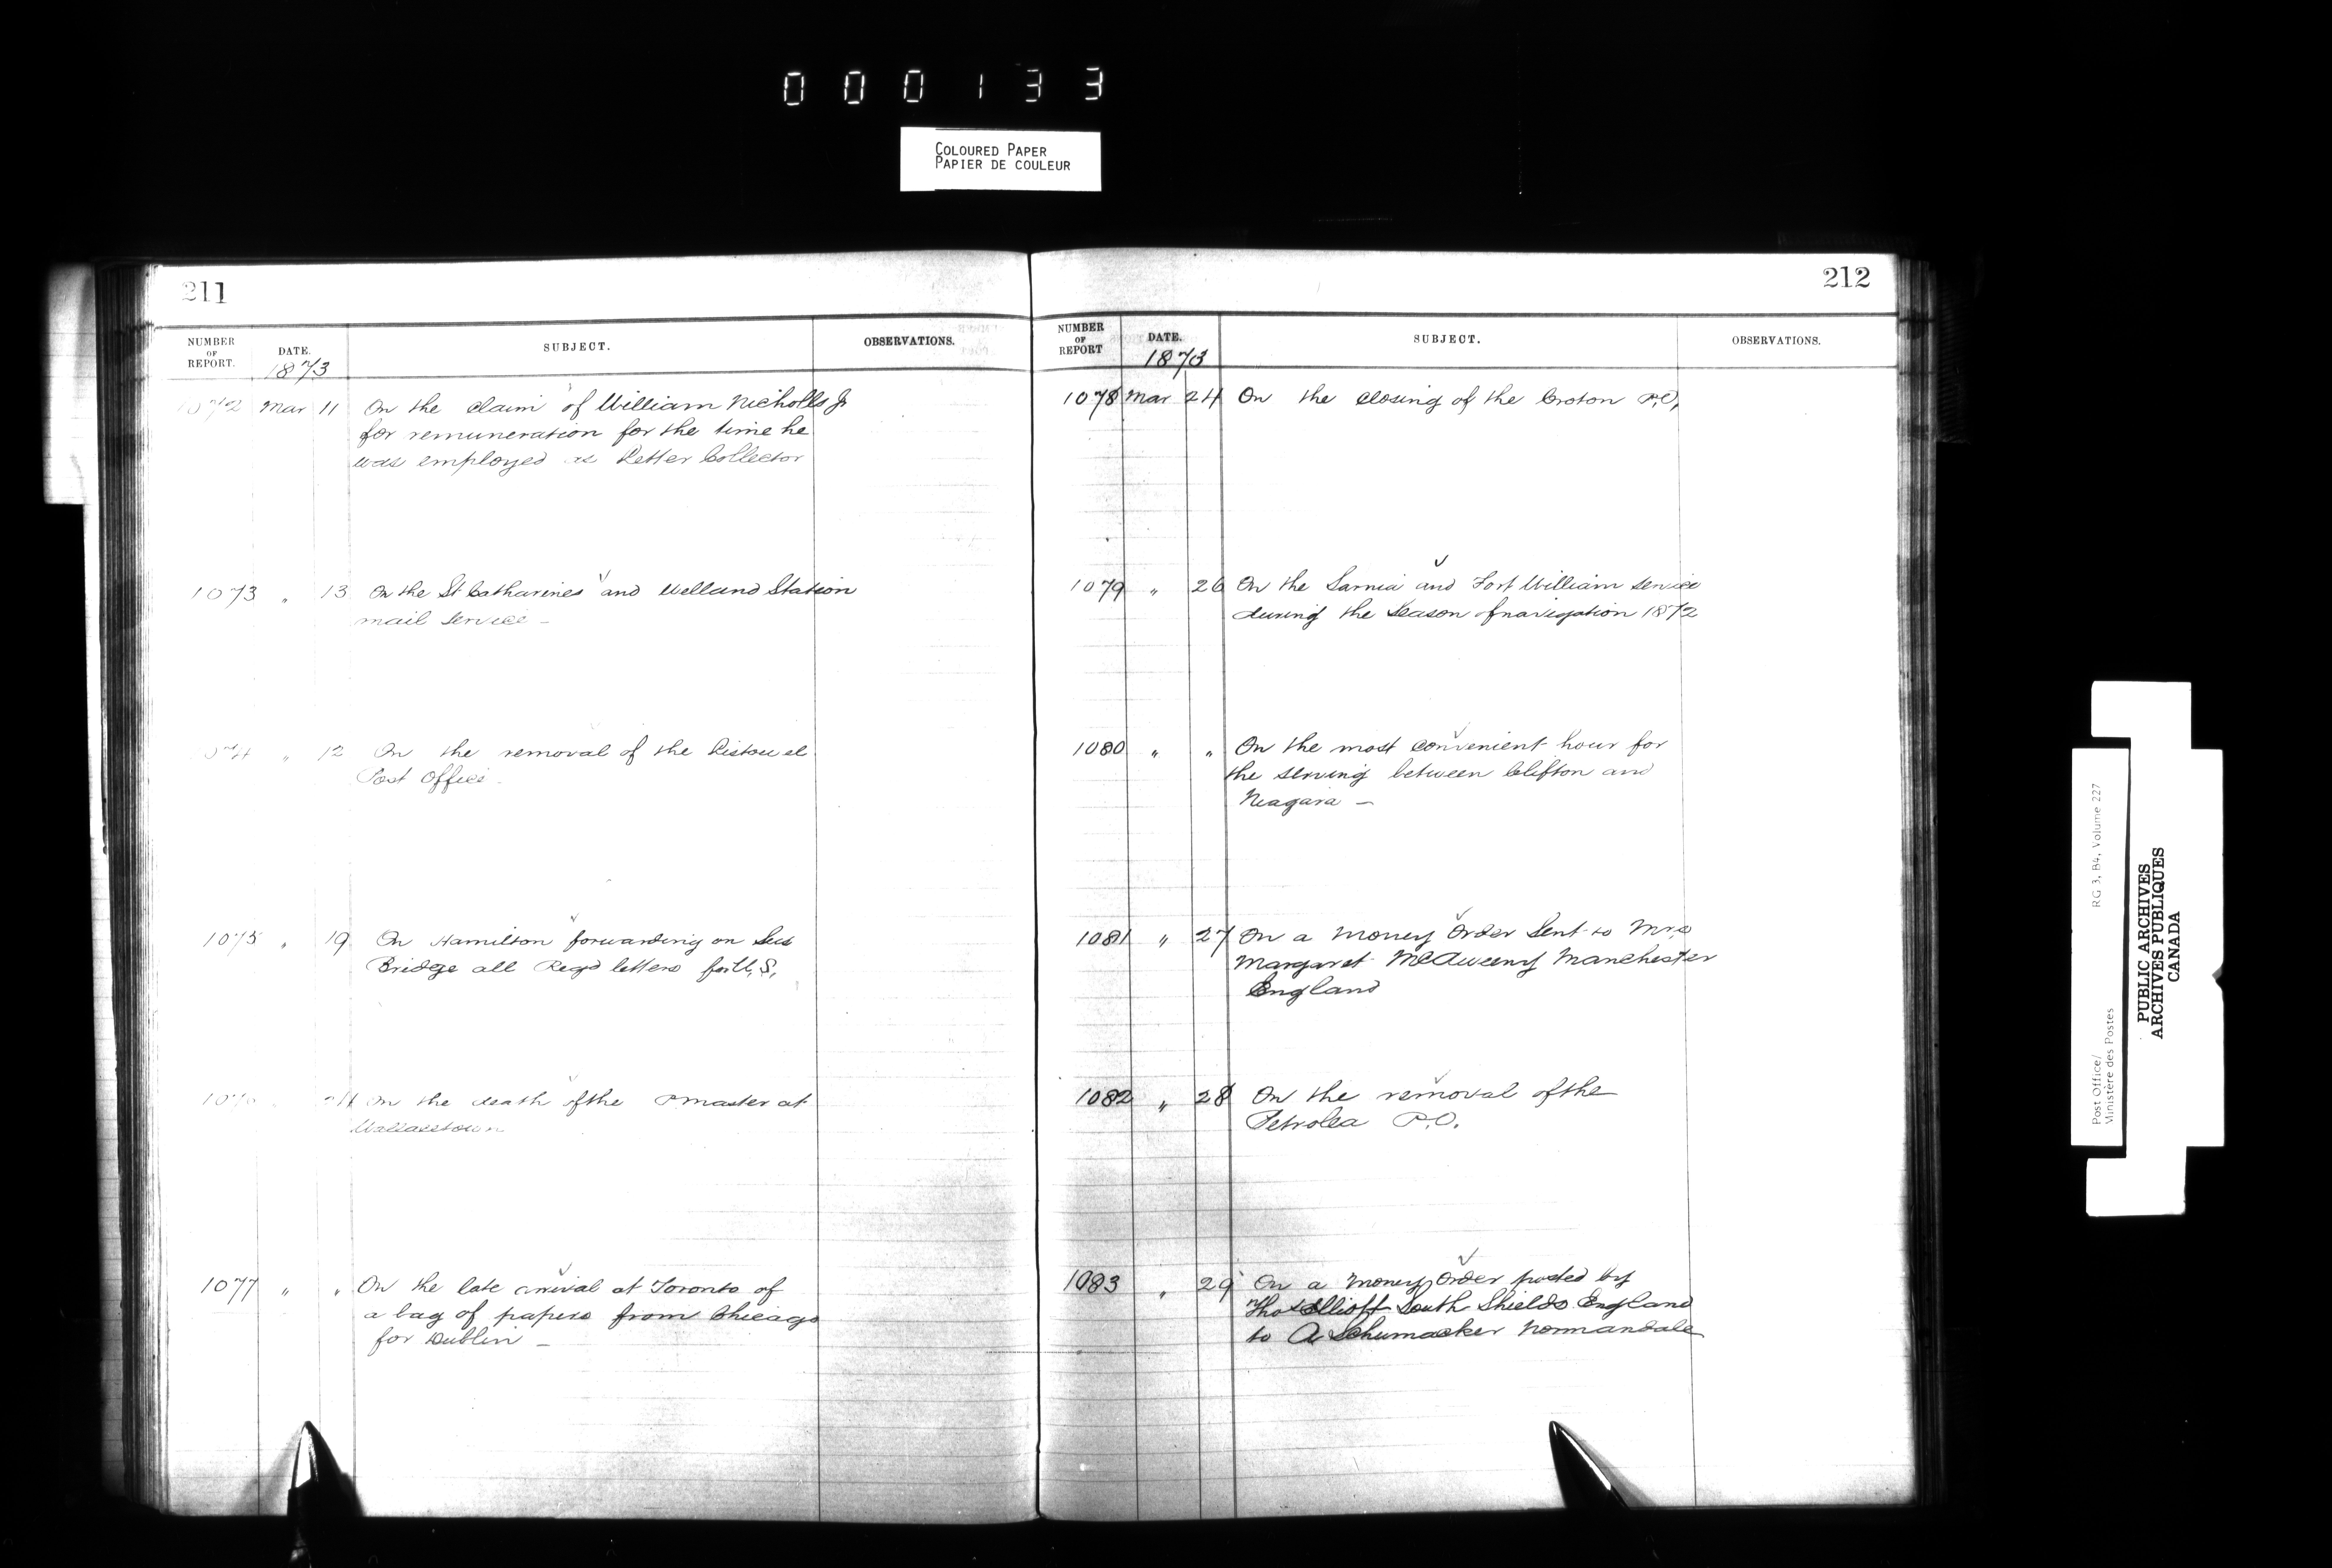 000133
COLOURED PAPER
PAPIER DE COULEUR
211
NUMBER OF REPORT. DATE. 1873 SUBJECT. OBSERVATIONS.
1072 Mar 11 On the claim of William Nicholls Jr
for remuneration for the time he
was employed as Letter Collector
1073 " 13 On the St Catharines and Welland Station
mail service –
1074 " 12 On the removal of the Listowel
Post Office
1075 " 19 On Hamilton forwarding on Sus
Bridge all Regd letters for U.S.
1076 24 On the death of the PMaster at
Wallacetown
1077 " " On the late arrival at Toronto of
a bag of papers from Chicago
for Dublin –
212
NUMBER OF REPORT DATE. 1873 SUBJECT. OBSERVATIONS.
1078 Mar 24 On the closing of the Croton P.O,
1079 " 26 On the Sarnia and Fort William service
during the season of navigation 1872
1080 " " On the most convenient hour for
the serving between Clifton and
Niagara –
1081 " 27 On a Money Order Sent to Mrs
Margaret McAweeny Manchester
England
1082 " 28 On the removal of the
Petrolea P.O.
1083 " 29 On a Money Order posted by
Thos Elliott South Shields England
to A Schumacker Normandale
Post Office/
Ministère des Postes
RG 3, B4, Volume 227
PUBLIC ARCHIVES
ARCHIVES PUBLIQUES
CANADA